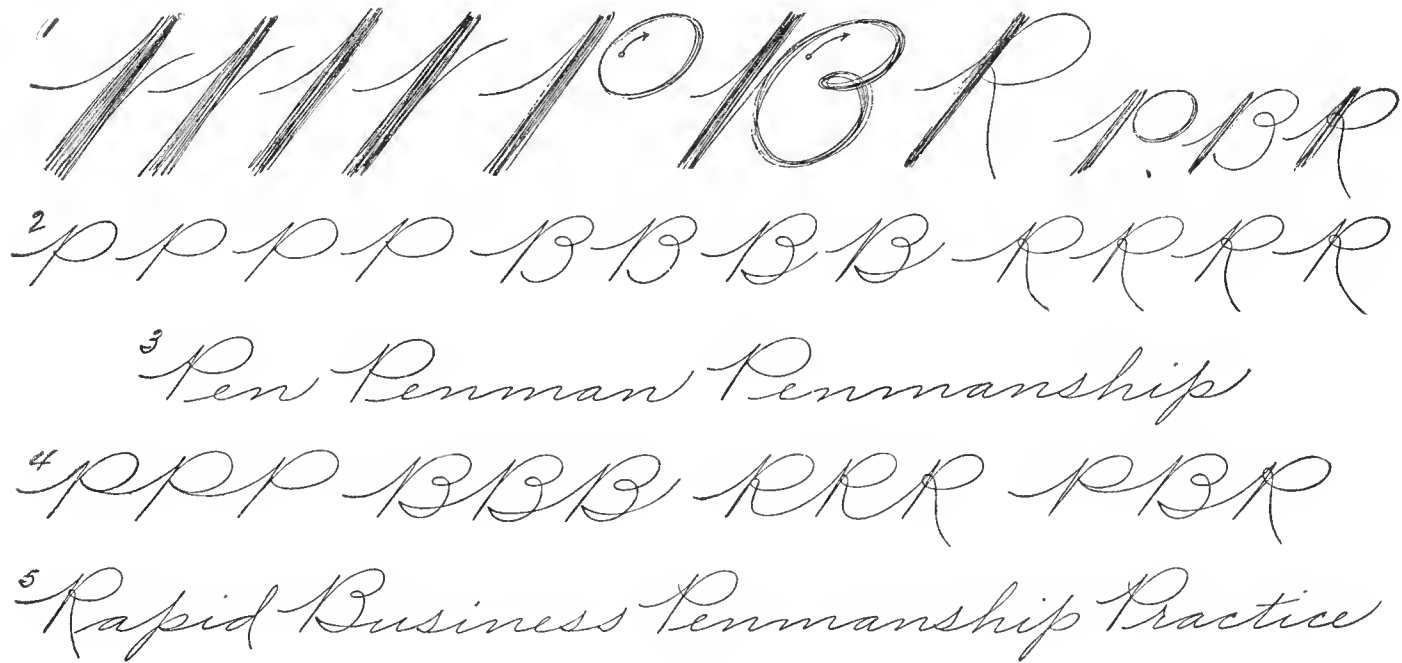 1 P B R P B R
2 P P P P B B B B R R R R
3 Pen Penman Penmanship
4 P P P B B B R R R P B R
5 Rapid Business Penmanship Practice